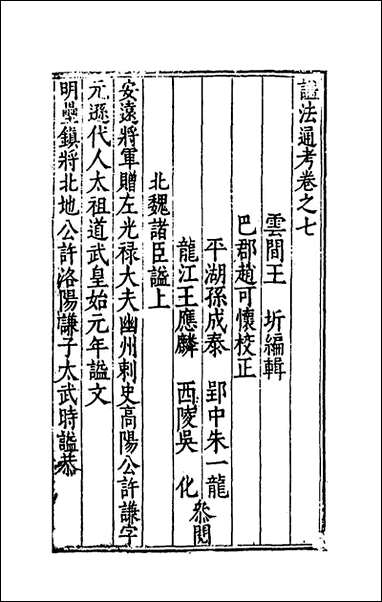 諡法通考卷之七
雲間王　圻編輯
巴郡趙可懷校正
平湖孫成泰　郢中朱一龍
龍江王應麟　西陵吳　化
參閱
北魏諸臣諡上
安遠將軍贈左光禄大夫幽州刺史高陽公許謙字
元遜代人太祖道武皇始元年諡文
明壘鎮將北地公許洛陽謙子太武時諡恭